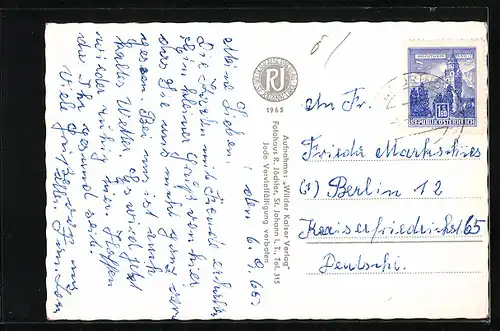 Meine Lieben! den 6.9.65.
Die Karten mit Freude erhalten
Ein kleiner Gruß von hier
das Sie uns nicht ganz ver-
gessen. Hier uns ist auch
kaltes Wetter. Es wird jetzt
wieder ruhig hier. Hoffen
die Ihr gesund seit.
Viele Grüße von uns
allen
RJ
1965
Aufnahme: „Wilder Kaiser Verlag"
Fotohaus R. Jöchler, St. Johann i. T., Tel. 315
Jede Vervielfältigung verboten
REPUBLIK ÖSTERREICH
An Fr.
Frieda Markschies
(1) Berlin 12
Kaiserfriedrichst 65
Deutschl.